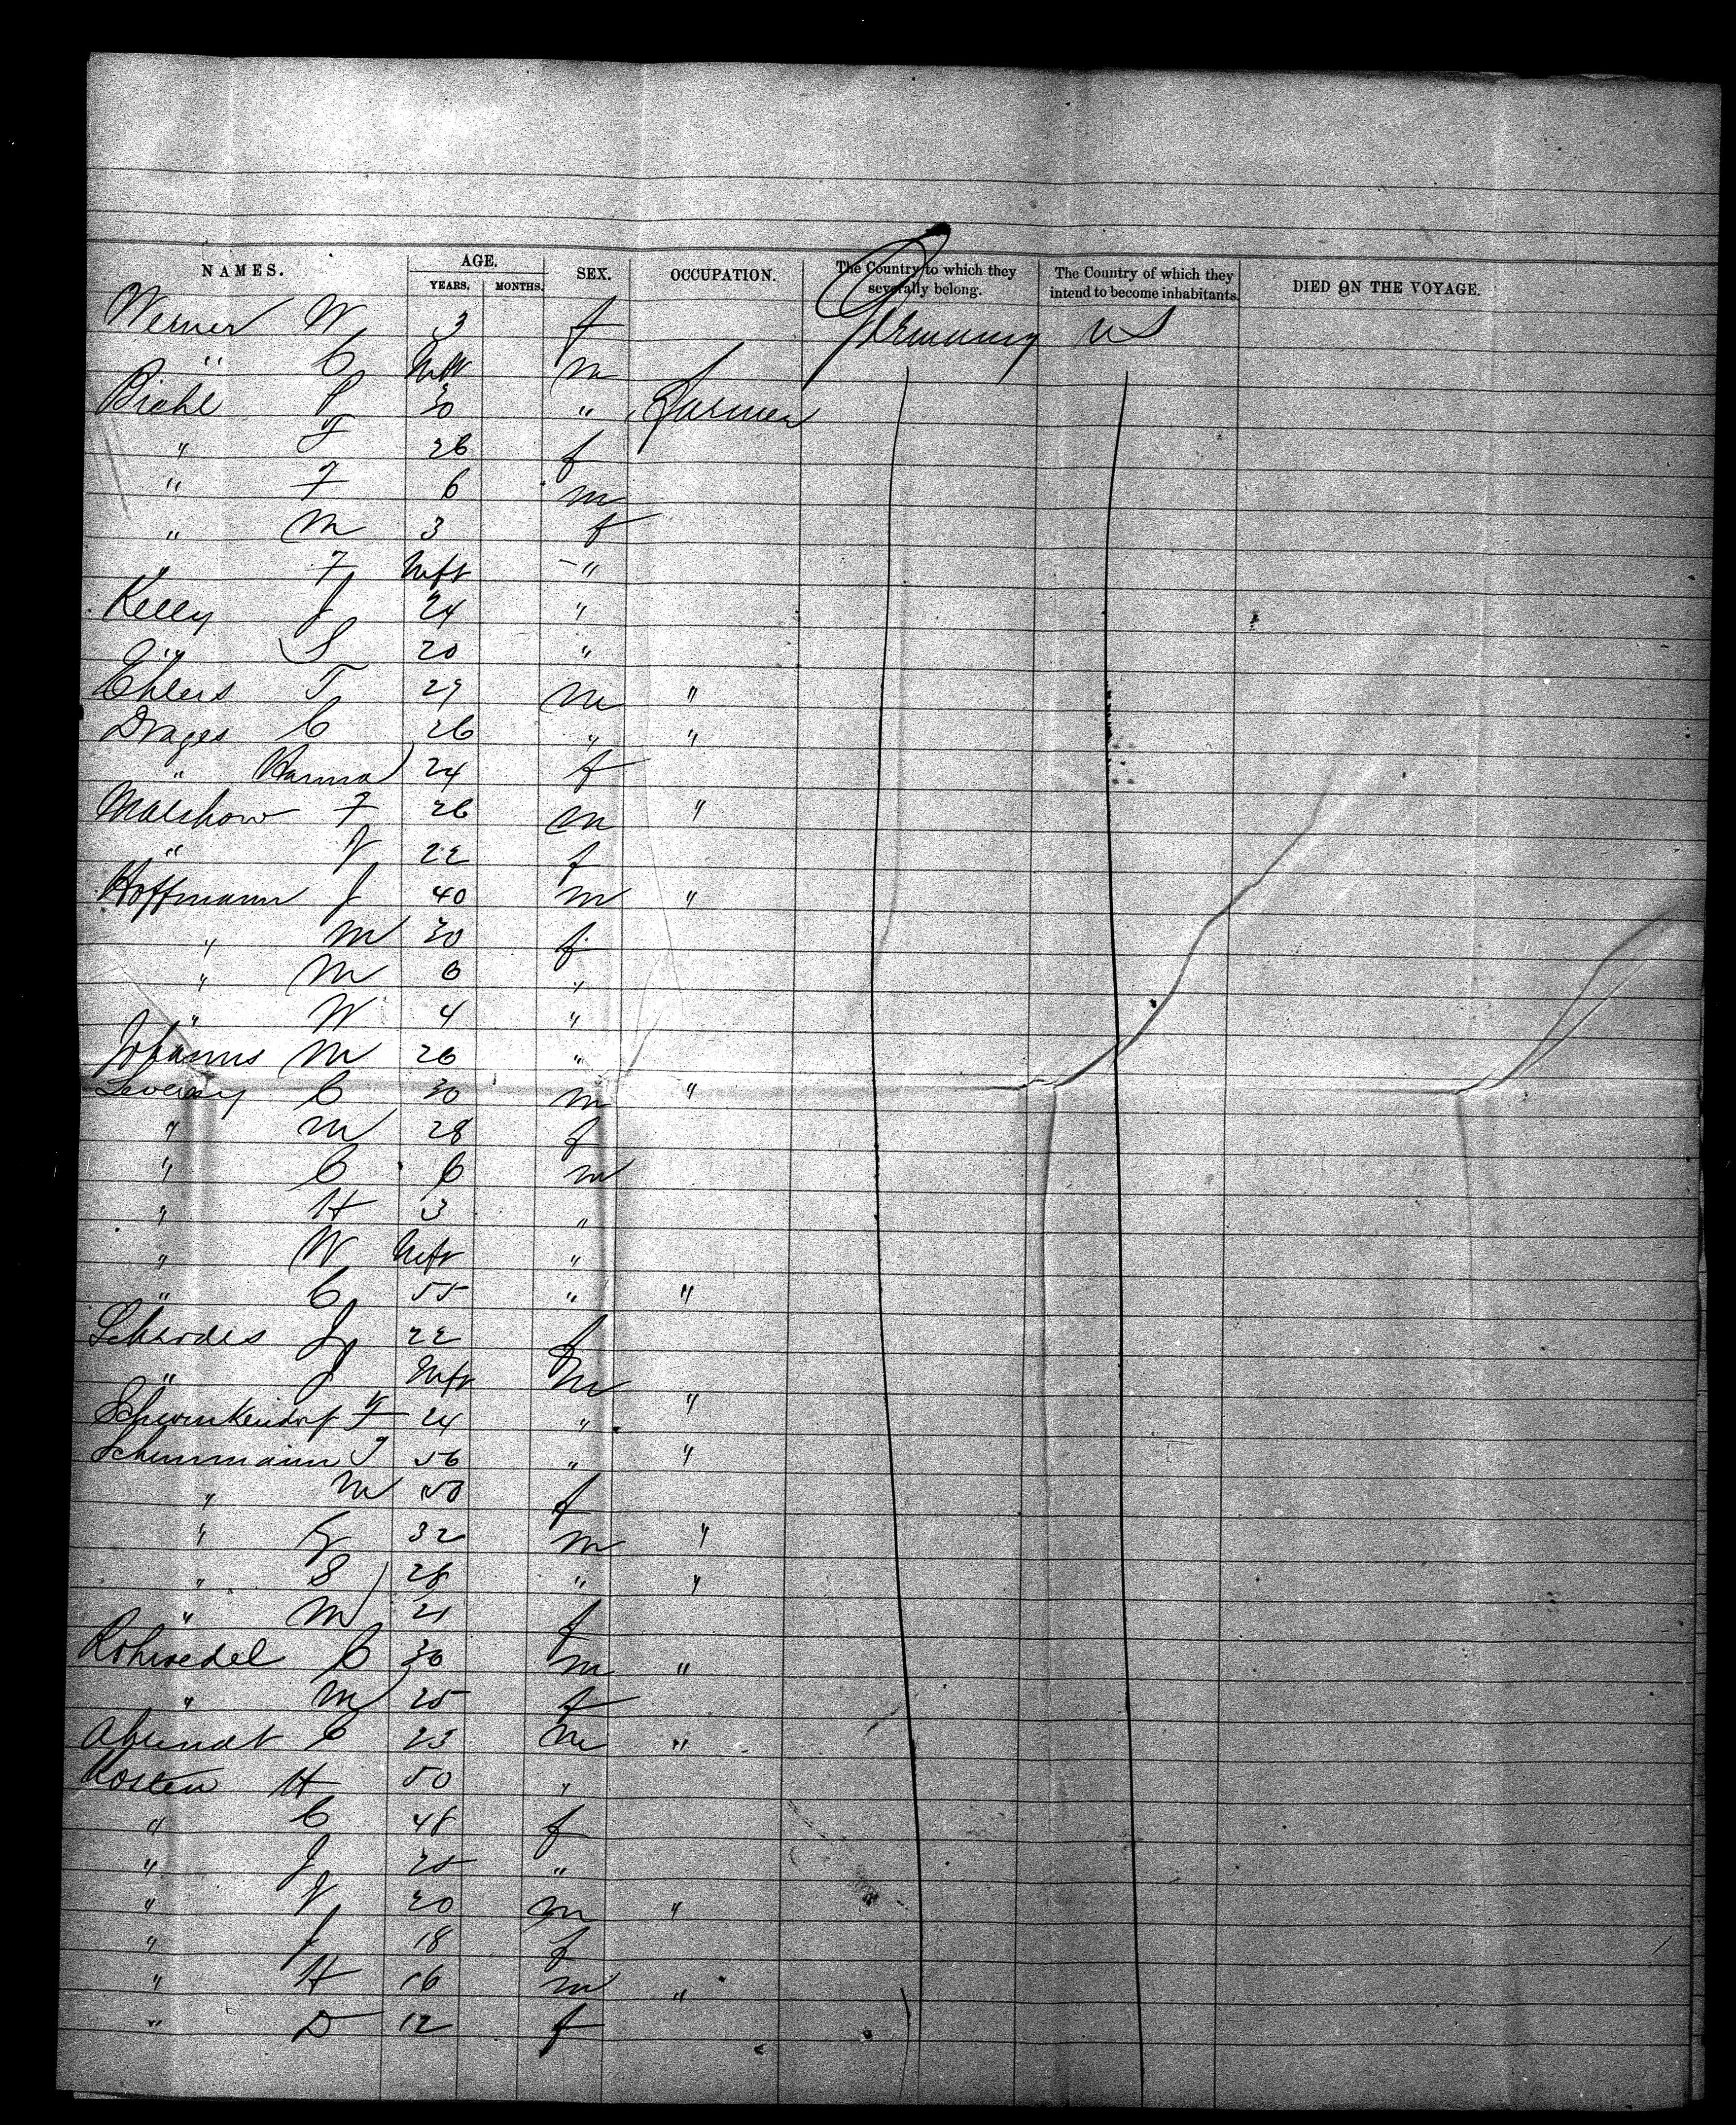 NAMES. AGE. YEARS. MONTHS. SEX. OCCUPATION. The Country to which they severally belong. The Country of which they intend to become inhabitants. DIED ON THE VOYAGE.
Werner W 3 f Germany US
" C Inft m
Biehl P 30 " Farmer
" F 26 f
" F 6 m
" M 3 f
" F Inft "
Kelly J 24 "
" S 20 "
Ehlers T 29 m "
Drages C 26 " "
" Hanna 24 f
Malchow F 26 m "
" J 22 f
Hoffmann J 40 m "
" M 30 f
" M 6 "
" W 4 "
Johanns M 26 "
C 30 m "
" M 28 f
" C 6 m
" H 3 "
" W Inft "
" C 55 " "
Schrodes J 22 f
" J Inft m
Schwinkendorf F 24 " "
Schunmann J 56 " "
" M 50 f
" G 32 m "
" S 28 " "
" M 21 f
Rohwedel C 30 m "
" M 25 f
Ahrendt C 23 m "
Kosten H 50 "
" C 48 f
" J 25 "
" J 20 m "
" J 18 f
" H 16 m "
" D 12 f